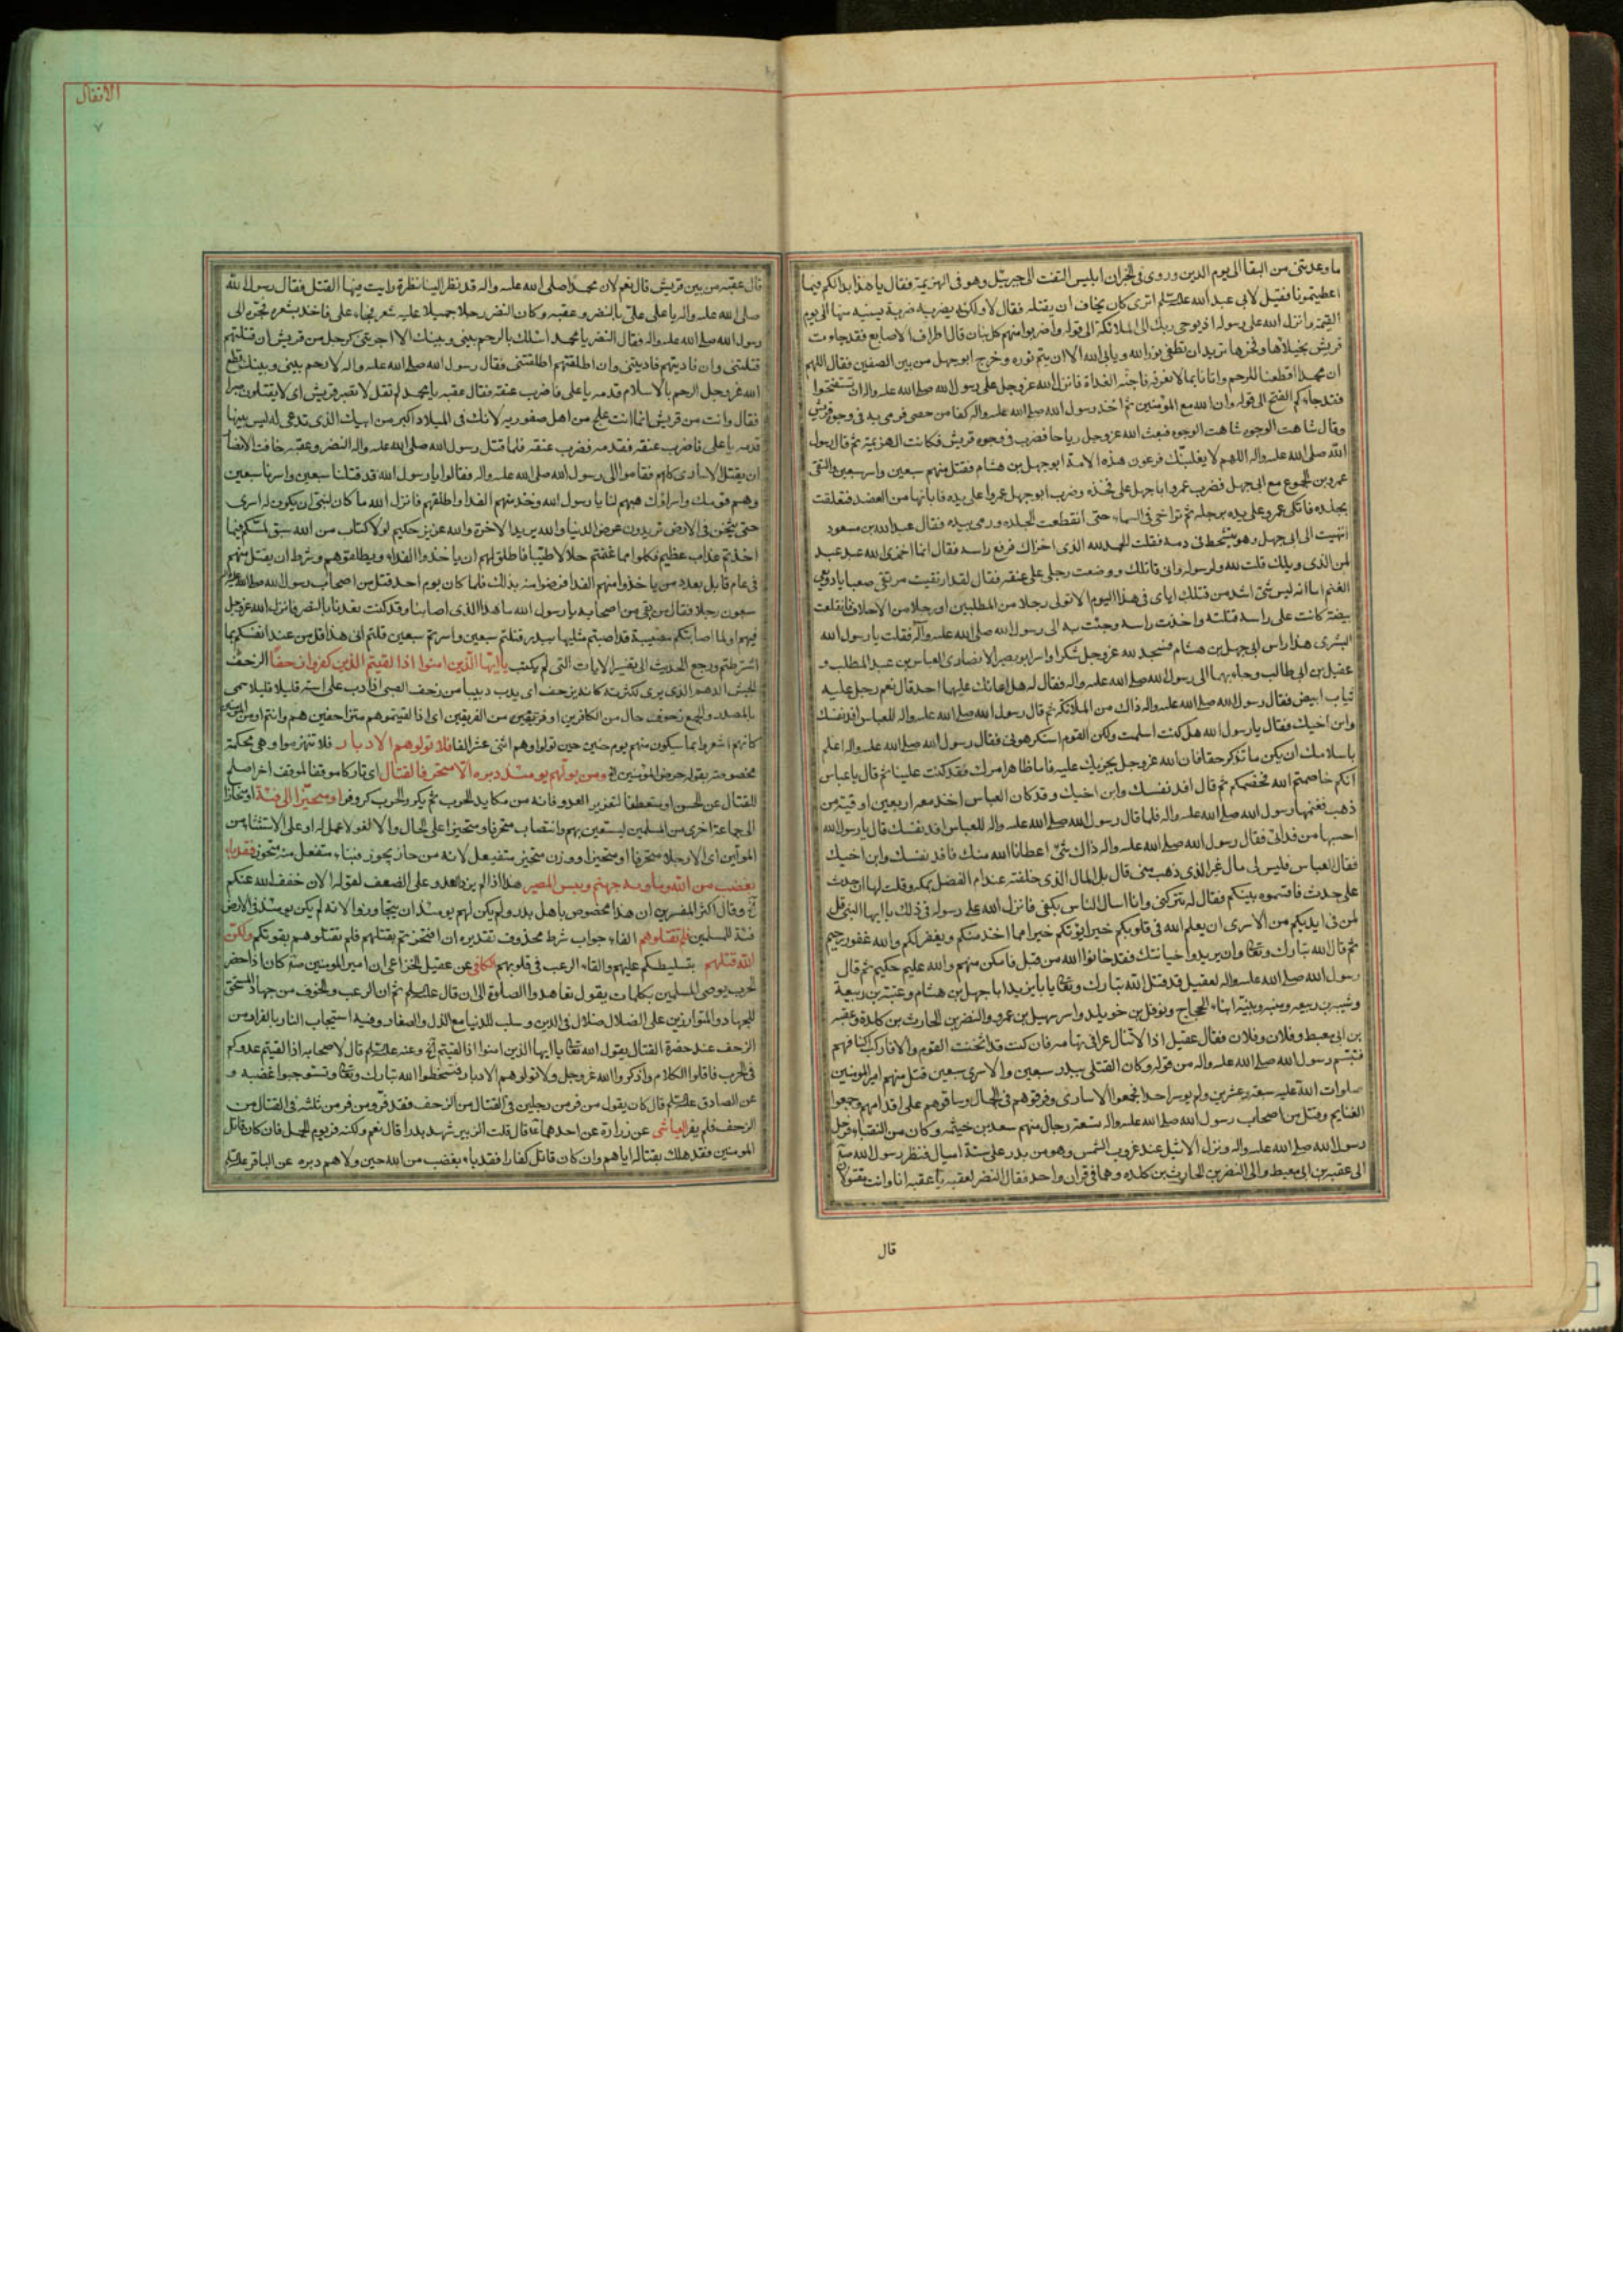 ما وعدتني من البقا الى يوم الدين وروى في الخبران ابليس التفت الى جبرئيل وهو في الهزيمة فقال يا هذا بدا لكم فيما
اعطيتمونا فقيل لابي عبد الله علیه السلم اترى كان يخاف ان يقتله فقال لا ولكنه يضربه ضربة يشينه منها الى يوم
القيمة وانزل الله على رسوله اذ يوحى ربك الى الملائكة الى قوله واضربوا منهم كل بنان قال اطراف الاصابع فقد جاءت
قريش بخيلائها وفخرها تريد ان تطفى نور الله ويابى الله الا ان يتم نوره وخرج ابو جهل من بين الصفين فقال اللهم
ان محمدا اقطعنا للرحم واتانا بما لا نعرفه فاحنه الغداة فانزل الله عز وجل على رسول الله صلى الله عليه واله ان تستفتحوا
فقد جاءكم الفتح الى قوله وان الله مع المؤمنين ثم اخذ رسول الله صلى الله عليه واله كفا من حصى فرمى به في وجوه قريش
وقال شاهت الوجوه شاهت الوجوه فبعث الله عز وجل رياحا فضرب في وجوه قريش فكانت الهزيمة ثم قال رسول
الله صلى الله عليه واله اللهم لا يغلبنك فرعون هذه الامة ابو جهل بن هشام فقتل منهم سبعين واسر سبعين والتقى
عمرو بن الجموع مع ابى جهل فضرب عمرو ابا جهل على فخذه وضرب ابو جهل عمروا على يده فابانها من العضد فتعلقت
بجلده فاتكى عمرو على يده برجله ثم تراخى في السماء حتى انقطعت الجلده ورمى بيده فقال عبد الله بن مسعود
انتهيت الى ابى جهل وهو يتشحط في دمه فقلت الحمد لله الذى اخزاك فرفع راسه فقال انما اخزى الله عبد عبد
لمن الذى ويلك قلت لله ولرسوله وانى قاتلك ووضعت رجلى على عنقه فقال لقد ارتقيت مرتقى صعبا يا رويعى
الغنم اما انه ليس شئ اشد من قتلك اياى في هذا اليوم الا تولى رجلا من المطلبين او رجلا من الاحلاف فانقلعت
بيضة كانت على راسه فقتلته واخذت راسه وجئت به الى رسول الله صلى الله عليه واله فقلت يا رسول الله
البشرى هذا راس ابى جهل بن هشام فسجد لله عز وجل شكرا واسر ابو بصير الانصارى العباس بن عبد المطلب و
عقيل بن ابى طالب وجاء بهما الى رسول الله صلى الله عليه واله فقال له هل اعانك عليهما احد قال نعم رجل عليه
ثياب ابيض فقال رسول الله صلى الله عليه واله ذاك من الملائكة ثم قال رسول الله صلى الله عليه واله للعباس افد نفسك
وابن اخيك فقال يا رسول الله هل كنت اسلمت ولكن القوم استكرهونى فقال رسول الله صلى الله عليه واله اعلم
باسلامك ان يكن ما تذكر حقا فان الله عز وجل يجزيك عليه فاما ظاهر امرك فقد كنت علينا ثم قال يا عباس
انكم خاصمتم الله فخصمكم ثم قال افد نفسك وابن اخيك وقد كان العباس اخذ معه اربعين اوقية من
ذهب فغنمها رسول الله صلى الله عليه واله فلما قال رسول الله صلى الله عليه واله للعباس افد نفسك قال يا رسول الله
احسبها من فدائى فقال رسول الله صلى الله عليه واله ذاك شئ اعطانا الله منك فافد نفسك وابن اخيك
فقال العباس فليس لى مال غير الذى ذهب منى قال بلى المال الذى خلفته عند ام الفضل بمكه وقلت لها ان حدث
على حدث فاقسموه بينكم فقال له تتركنى وانا اسال الناس بكفى فانزل الله على رسوله في ذلك يا ايها النبى قل
لمن في ايديكم من الاسرى ان يعلم الله في قلوبكم خيرا يؤتكم خيرا مما اخذ منكم ويغفر لكم والله غفور رحيم
ثم قال الله تبارك وتعا وان يريدوا خيانتك فقد خانوا الله من قبل فامكن منهم والله عليم حكيم ثم قال
رسول الله صلى الله عليه واله لعقيل قد قتل الله تبارك وتعا يا با يزيد ابا جهل بن هشام وعتبة بن ربيعة
وشيبه بن ربيعه ومنبه ونبيه ابناء الحجاج ونوفل بن خويلد واسر سهيل بن عمرو والنضر بن الحارث بن كلدة وعقبه
بن ابى معيط وفلان وفلان فقال عقيل اذا لا تنازعوا في تهامه فان كنت قد اثخنت القوم والا فاركب اكتافهم
فتبسم رسول الله صلى الله عليه واله من قوله وكان القتلى ببدر سبعين والاسرى سبعين قتل منهم امير المؤمنين
صلوات الله عليه سبعه وعشرين ولم يوسر احدا فجمعوا الاسارى وفرقوهم في الجمال وساقوهم على اقدامهم وجمعوا
الغنايم وقتل من اصحاب رسول الله صلى الله عليه واله تسعة رجال منهم سعد بن خيثمه وكان من النقباء فرحل
رسول الله صلى الله عليه واله ونزل الاثيل عند غروب الشمس وهو من بدر على ستة اميال فنظر رسول الله ص
الى عقبه بن ابى معيط والى النضر بن الحارث بن كلده وهما في قران واحد فقال النضر لعقبه يا عقبه انا وانت مقتولان
قال
الانفال
٧
قال عقبه من بين قريش قال نعم لان محمدا صلى الله عليه واله قد نظر الينا نظرة رايت فيها القتل فقال رسول الله
صلى الله عليه واله يا على علىّ بالنضر وعقبه وكان النضر رجلا جميلا عليه شعر فجاء على فاخذ بشعره فجره الى
رسول الله صلى الله عليه واله فقال النضر يا محمد اسئلك بالرحم بينى وبينك الا اجريتنى كرجل من قريش ان قتلتهم
قتلتنى وان فاديتهم فاديتنى وان اطلقتهم اطلقتنى فقال رسول الله صلى الله عليه واله لا رحم بينى وبينك قطع
الله عز وجل الرحم بالاسلام قدمه يا على فاضرب عنقه فقال عقبه يا محمد الم تقل لا تصبر قريش اى لا يقتلون صبرا
فقال وانت من قريش انما انت علج من اهل صفوريه لانك في الميلاد اكبر من ابيك الذى تدعى له ليس منها
قدمه يا على فاضرب عنقه فقدمه فضرب عنقه فلما قتل رسول الله صلى الله عليه واله النضر وعقبه خافت الانصار
ان يقتل الاسارى كلهم فقاموا الى رسول الله صلى الله عليه واله فقالوا يا رسول الله قد قتلنا سبعين واسرنا سبعين
وهم قومك واساراك هبهم لنا يا رسول الله وخذ منهم الفدا واطلقهم فانزل الله ما كان لنبى ان يكون له اسرى
حتى يثخن في الارض تريدون عرض الدنيا والله يريد الاخرة والله عزيز حكيم لولا كتاب من الله سبق لمسكم فيما
اخذتم عذاب عظيم فكلوا مما غنمتم حلالا طيبا فاطلق لهم ان ياخذوا الفداء ويطلقوهم وشرط ان يقتل منهم
في عام قابل بعدد من ياخذوا منهم الفدا فرضوا منه بذلك فلما كان يوم احد قتل من اصحاب رسول الله صلى الله عليه واله
سبعون رجلا فقال من بقى من اصحابه يا رسول الله ما هذا الذى اصابنا وقد كنت تعدنا بالنصر فانزل الله عز وجل
فيهم اولما اصابتكم مصيبة قد اصبتم مثليها ببدر قتلتم سبعين واسرتم سبعين قلتم انى هذا قل من عند انفسكم بما
اشترطتم ورجع الحديث الى تفسير الايات التى لم يكتب يا ايها الذين امنوا اذا لقيتم الذين كفروا زحفا الزحف
الجيش الدهم الذى يرى لكثرته كانه يزحف اى يدب دبيبا من زحف الصبى اذا دب على استه قليلا قليلا سمى
بالمصدر والجمع زحوف حال من الكافرين او فريقين من الفريقين اى اذا لقيتموهم متزاحفين هم وانتم او من المؤمنين
كانهم اشعروا بما سيكون منهم يوم حنين حين تولوا وهم اثنى عشر الفا فلا تولوهم الادبار فلا تنهزموا وهى محكمة
مخصوصة بقوله حرض المؤمنين الخ ومن يولهم يومئذ دبره الا متحرفا لقتال اى تاركا موقفا لموقف اخر اصلح
للقتال عن الحسن او منعطفا لتغرير العدو فانه من مكايد الحرب ثم يكر والحرب كر وفر او متحيزا الى فئة او منحازا
الى جماعة اخرى من المسلمين ليستعين بهم وانتصاب متحرفا ومتحيزا على الحال والا لغو لا عمل له او على الاستثناء من
المولين اى الا رجلا متحرفا او متحيزا ووزن متحيز متفيعل لانه من حاز يحوز فبناء متفعل منه متحوز فقد باء
بغضب من الله وماويه جهنم وبئس المصير هذا اذا لم يزد العدو على الضعف لقوله الان خفف الله عنكم
الخ وقال اكثر المفسرين ان هذا مخصوص باهل بدر ولم يكن لهم يومئذ ان ينحازوا لانه لم يكن يومئذ في الارض
فئة للمسلمين فلم تقتلوهم الفاء جواب شرط محذوف تقديره ان افتخرتم بقتلهم فلم تقتلوهم بقوتكم ولكن
الله قتلهم بتسليطكم عليهم والقاء الرعب في قلوبهم الكافى عن عقيل الخزاعى ان امير المومنين ص كان اذا حضر
الحرب يوصى المسلمين بكلمات يقول تعاهدوا الصلوة الى ان قال علیه السلم ثم ان الرعب والخوف من جهاد المستحق
للجهاد والمتوازرين على الضلال ضلال في الدين وسلب للدنيا مع الذل والصغار وفيه استيجاب النار بالفرار من
الزحف عند حضرة القتال يقول الله تعا يا ايها الذين امنوا اذا لقيتم الخ وعنه علیه السلم قال لاصحابه اذا لقيتم عدوكم
في الحرب فاقلوا الكلام واذكروا الله عز وجل ولا تولوهم الادبار فتسخطوا الله تبارك وتعا وتستوجبوا غضبه و
عن الصادق علیه السلم قال كان يقول من فر من رجلين في القتال من الزحف فقد فر ومن فر من ثلثه في القتال من
الزحف فلم يفر العياشى عن زرارة عن احدهما ع قال قلت الزبير شهد بدرا قال نعم ولكنه فر يوم الجمل فان كان قاتل
المومنين فقد هلك بقتاله اياهم وان كان قاتل كفارا فقد باء بغضب من الله حين ولاهم دبره عن الباقر علیه السلم